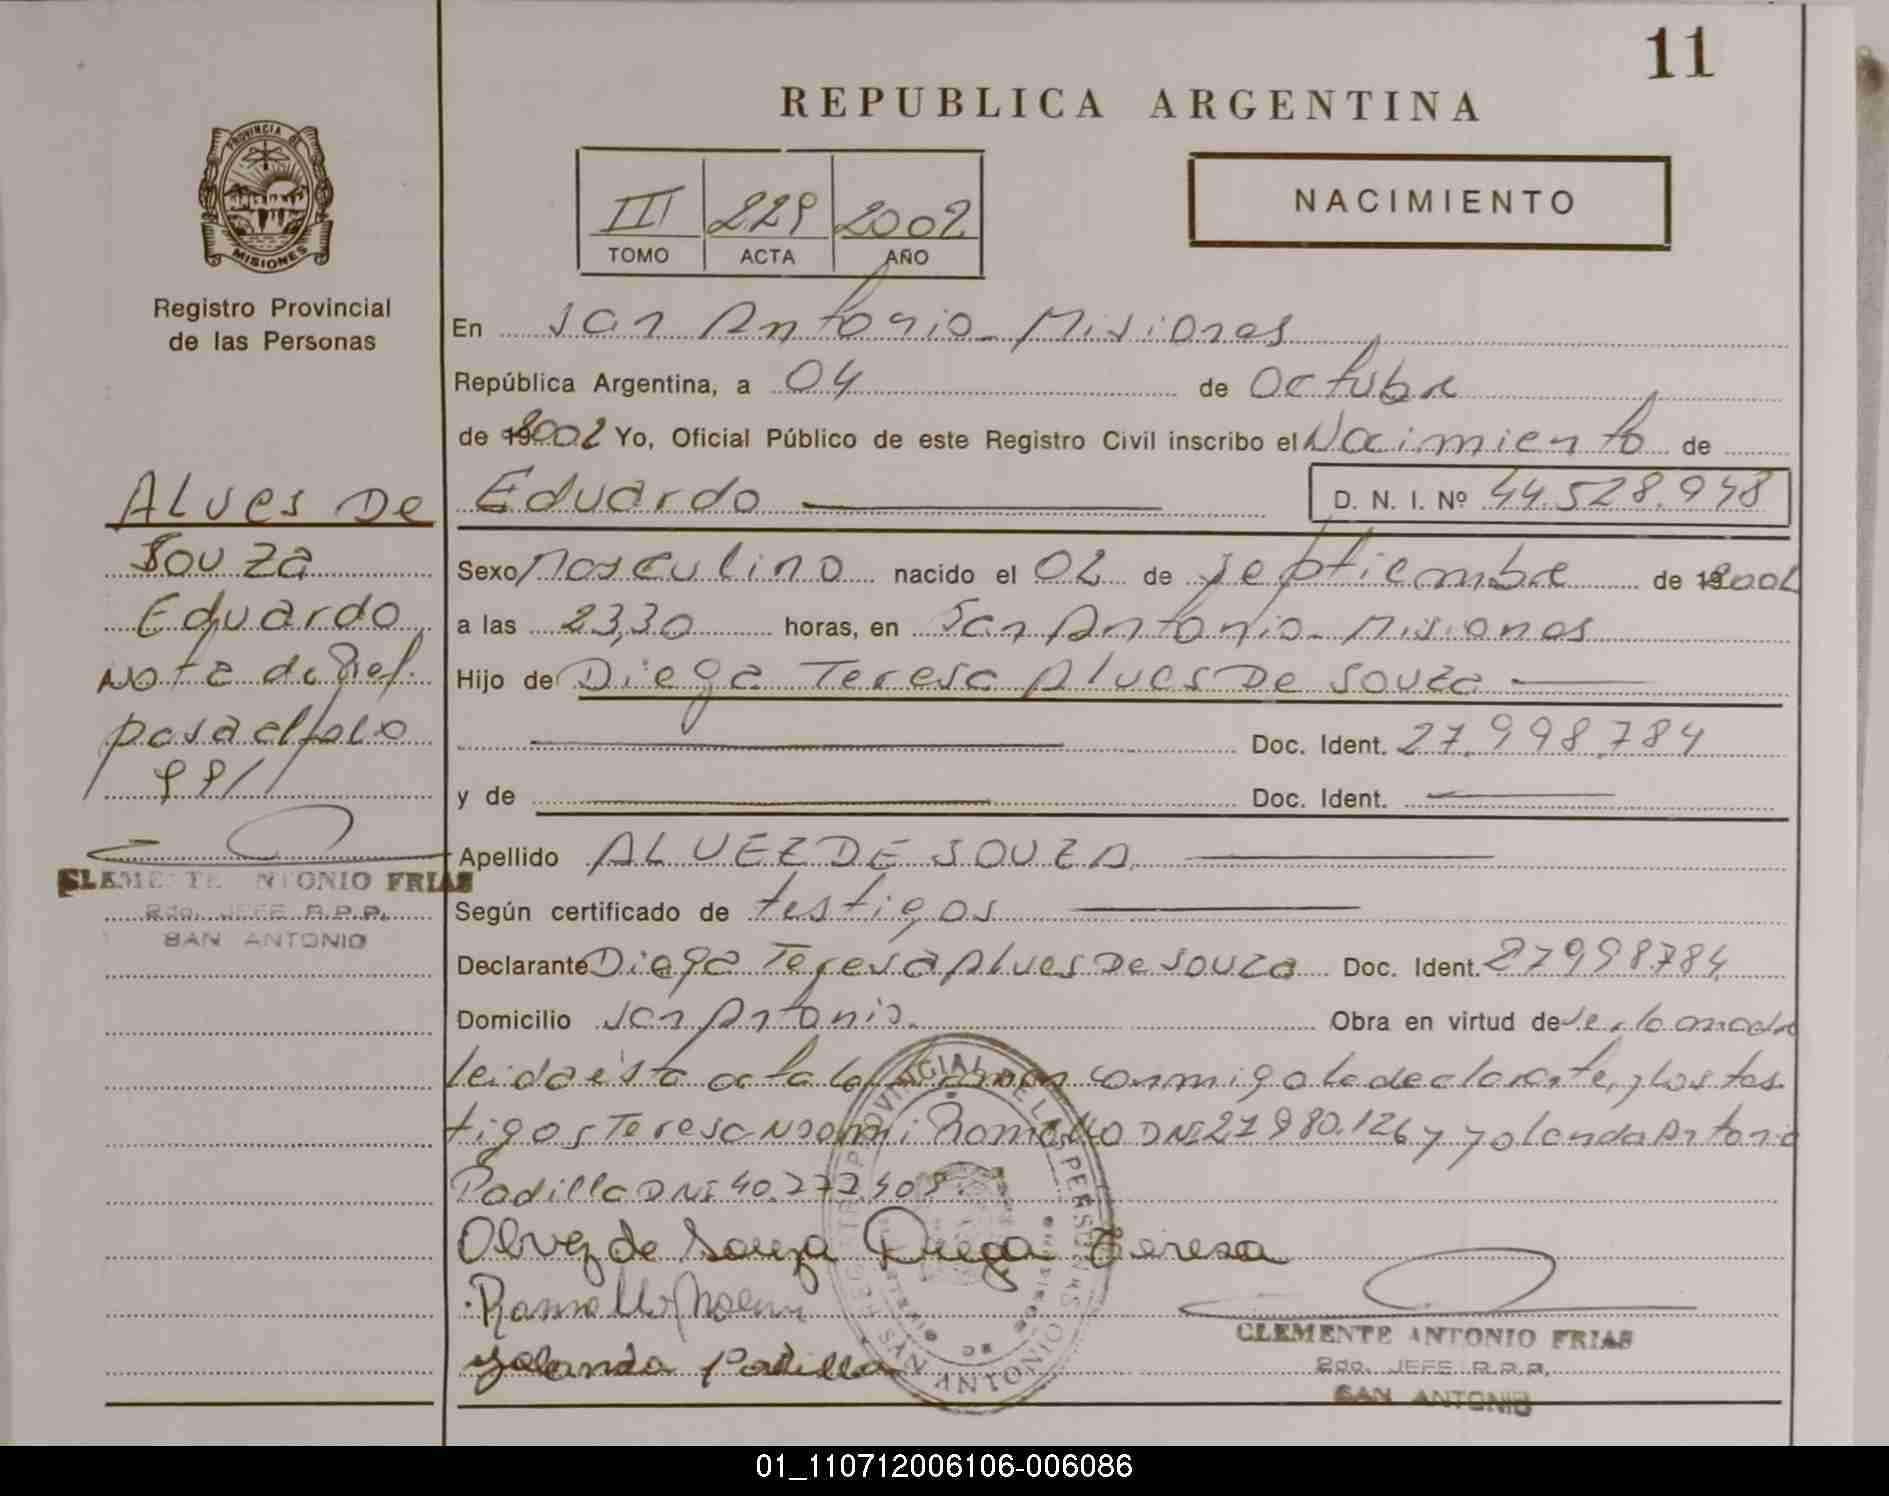 11
REPUBLICA ARGENTINA
PROVINCIA DE
MISIONES
III 229 2002
TOMO ACTA AÑO
NACIMIENTO
Registro Provincial
de las Personas
En San Antonio - Misiones
República Argentina, a 04 de Octubre
de 2002 Yo, Oficial Público de este Registro Civil inscribo el Nacimiento de
Eduardo D. N. I. Nº 44.528.948
Sexo Masculino nacido el 02 de Septiembre de 2002
a las 23,30 horas, en San Antonio - Misiones
Hijo de Diega Teresa Alves De Souza
Doc. Ident. 27.998.784
y de Doc. Ident.
Apellido ALVEZ DE SOUZA
Según certificado de testigos
Declarante Diega Teresa Alves De Souza Doc. Ident. 27998784
Domicilio San Antonio. Obra en virtud de ser la madre
leida esta acta la firman conmigo la declarante, y los tes
tigos Teresa Noemi Romallo DNI 27980.126 y Yolanda Antonia
Padilla DNI 40.272.409.
Alvez de Souza Diega Teresa
Ramallo Noemi
Yolanda Padilla
CLEMENTE ANTONIO FRIAS
2do. JEFE R.P.P.
SAN ANTONIO
ALVES DE
Souza
Eduardo
Nota de Ref.
pasa al folio
99//
CLEMENTE ANTONIO FRIAS
2do. JEFE R.P.P.
SAN ANTONIO
01_110712006106-006086